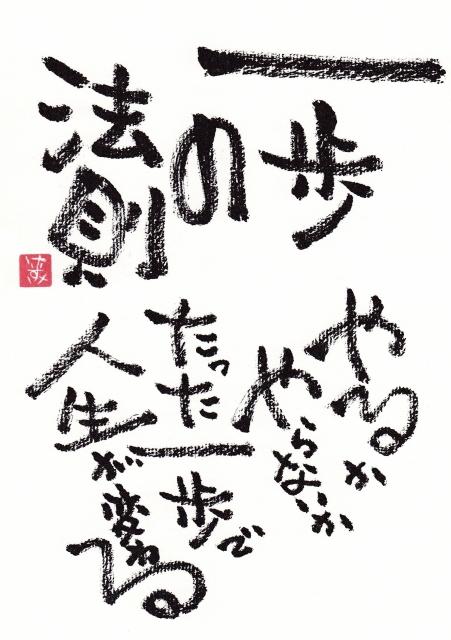 一歩
の
法則
やるか
やらないか
たった
一歩で
人生が変わる